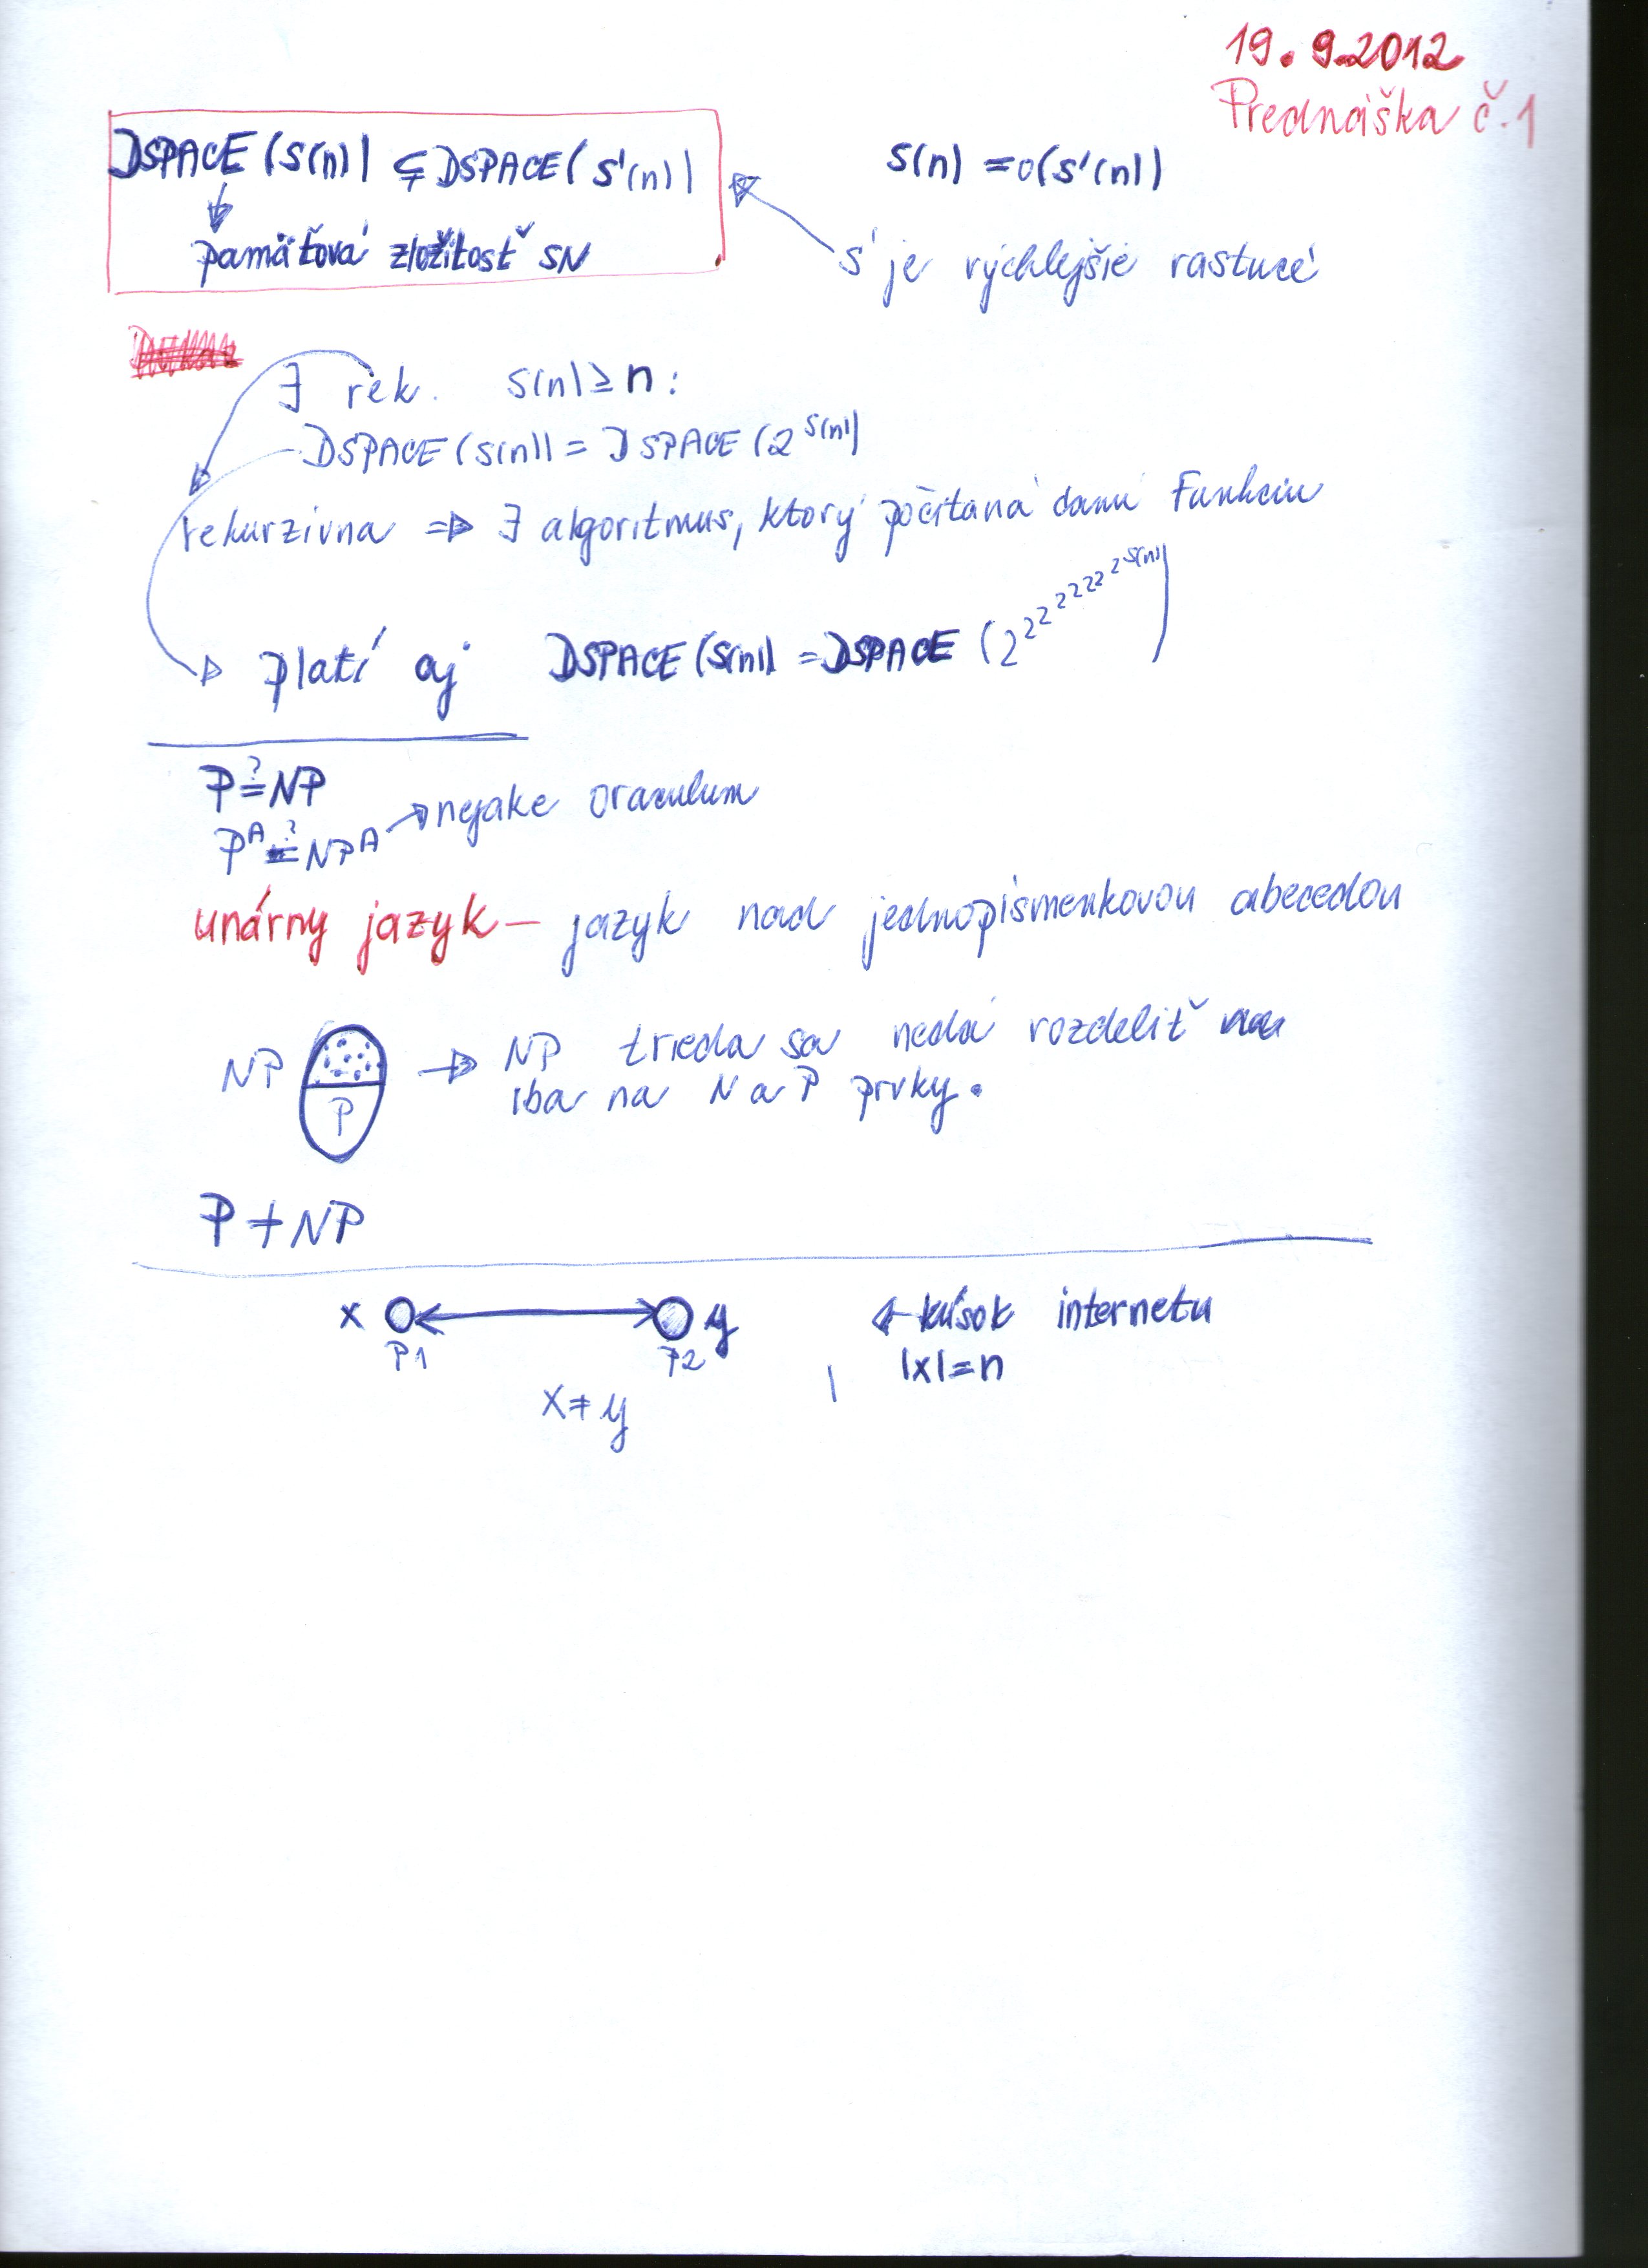 19.9.2012
Prednáška č.1
DSPACE (s(n)) ⊊ DSPACE (s'(n))
s(n) = o(s'(n))
pamäťová zložitosť SN
s' je rýchlejšie rastúcé
∃ rek. s(n) ≥ n:
DSPACE (s(n)) = DSPACE (2^s(n))
rekurzívna ⇒ ∃ algoritmus, ktorý počítaná danú Funkciu
platí aj DSPACE (s(n)) = DSPACE (2^2^2^2^2^2^2^2^s(n))
P ?= NP
P^A ?= NP^A → nejake oraculum
unárny jazyk – jazyk nad jednopísmenkovou abecedou
NP P → NP trieda sa nedá rozdeliť
iba na N a P prvky.
P ≠ NP
x y ← kúsok internetu
P1 P2 |x|=n
x ≠ y